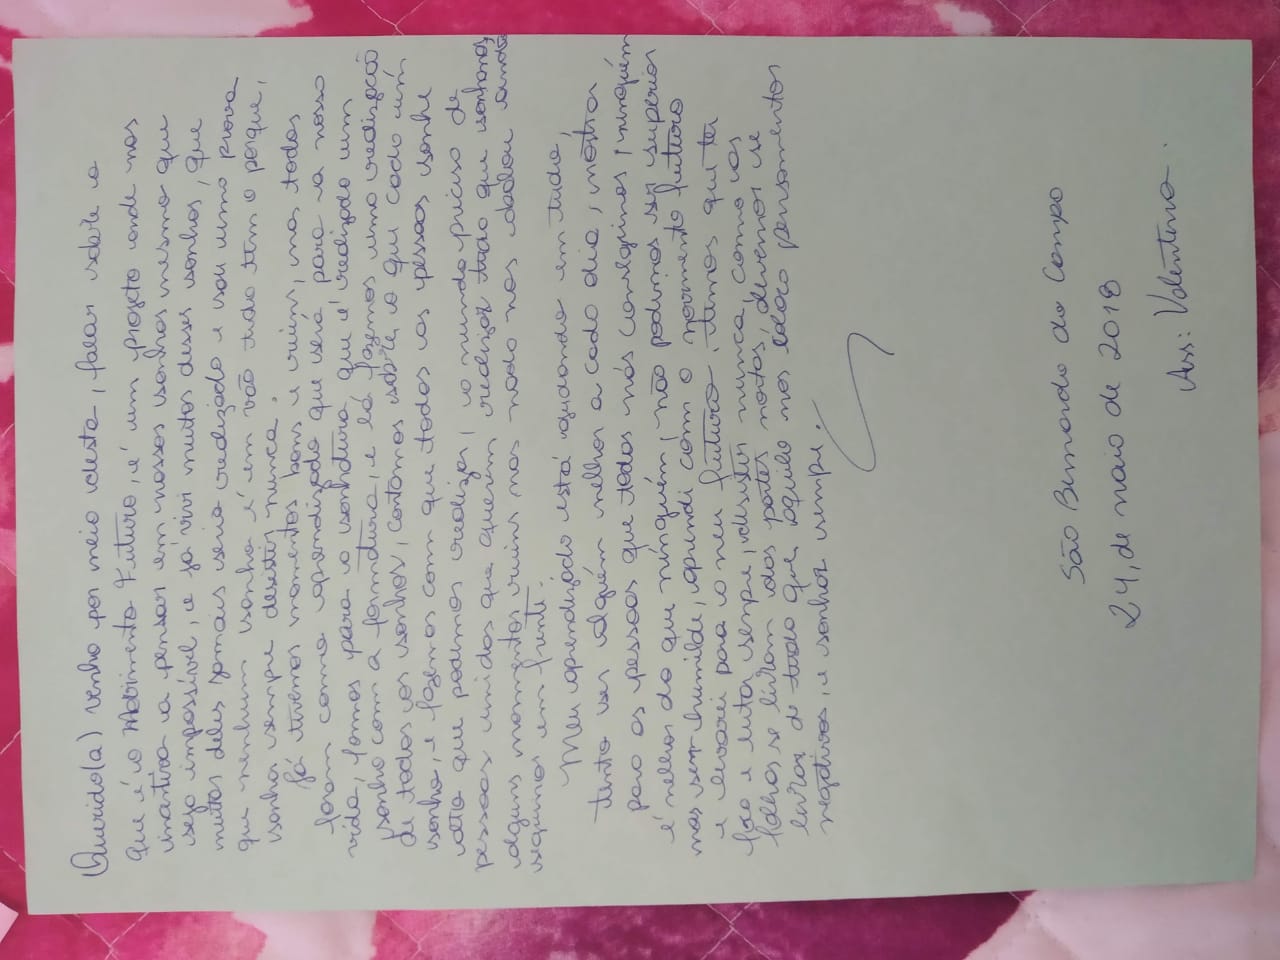 Querido(a) venho por meio desta, falar sobre o
que é o Movimento Futuro, é um projeto onde nos
insentiva a pensar em nossos sonhos mesmo que
seja impossível, e já vivi muitos desses sonhos, que
muitos deles jamais seria realizado e sou uma prova
que nenhum sonho é em vão tudo tem o porque,
sonhar sempre desistir nunca.
Já tivemos momentos bons e ruins, mas todos
foram como aprendizado que será para a nossa
vida, fomos para o sonhatura que é realizado um
sonho com a formatura, e lá fazemos uma realização
de todos os sonhos, contamos sobre o que cada um
sonha, e fazemos com que todas as pessoas sonhe
alto que podemos realizar, o mundo precisa de
pessoas unidas que querem realizar tudo que sonhamos,
alguns momentos ruins mas nada nos abalou ainda
seguimos em frente.
Meu aprendizado está ajudando em tudo,
tento ser alguém melhor a cada dia, mostrar
para as pessoas que todos nós conseguimos, ninguém
é melhor do que ninguém, não podemos ser superior
mas sem humilde, aprendi com o movimento futuro
e levarei para o meu futuro, temos que ter
foco e lutar sempre, desistir nunca, como as
folhas se livram das partes mortas, devemos se
livrar de tudo que aquilo nos coloca pensamentos
negativos, e sonhar sempre.
São Bernardo do Campo
24, de maio de 2018
Ass: Valentina.